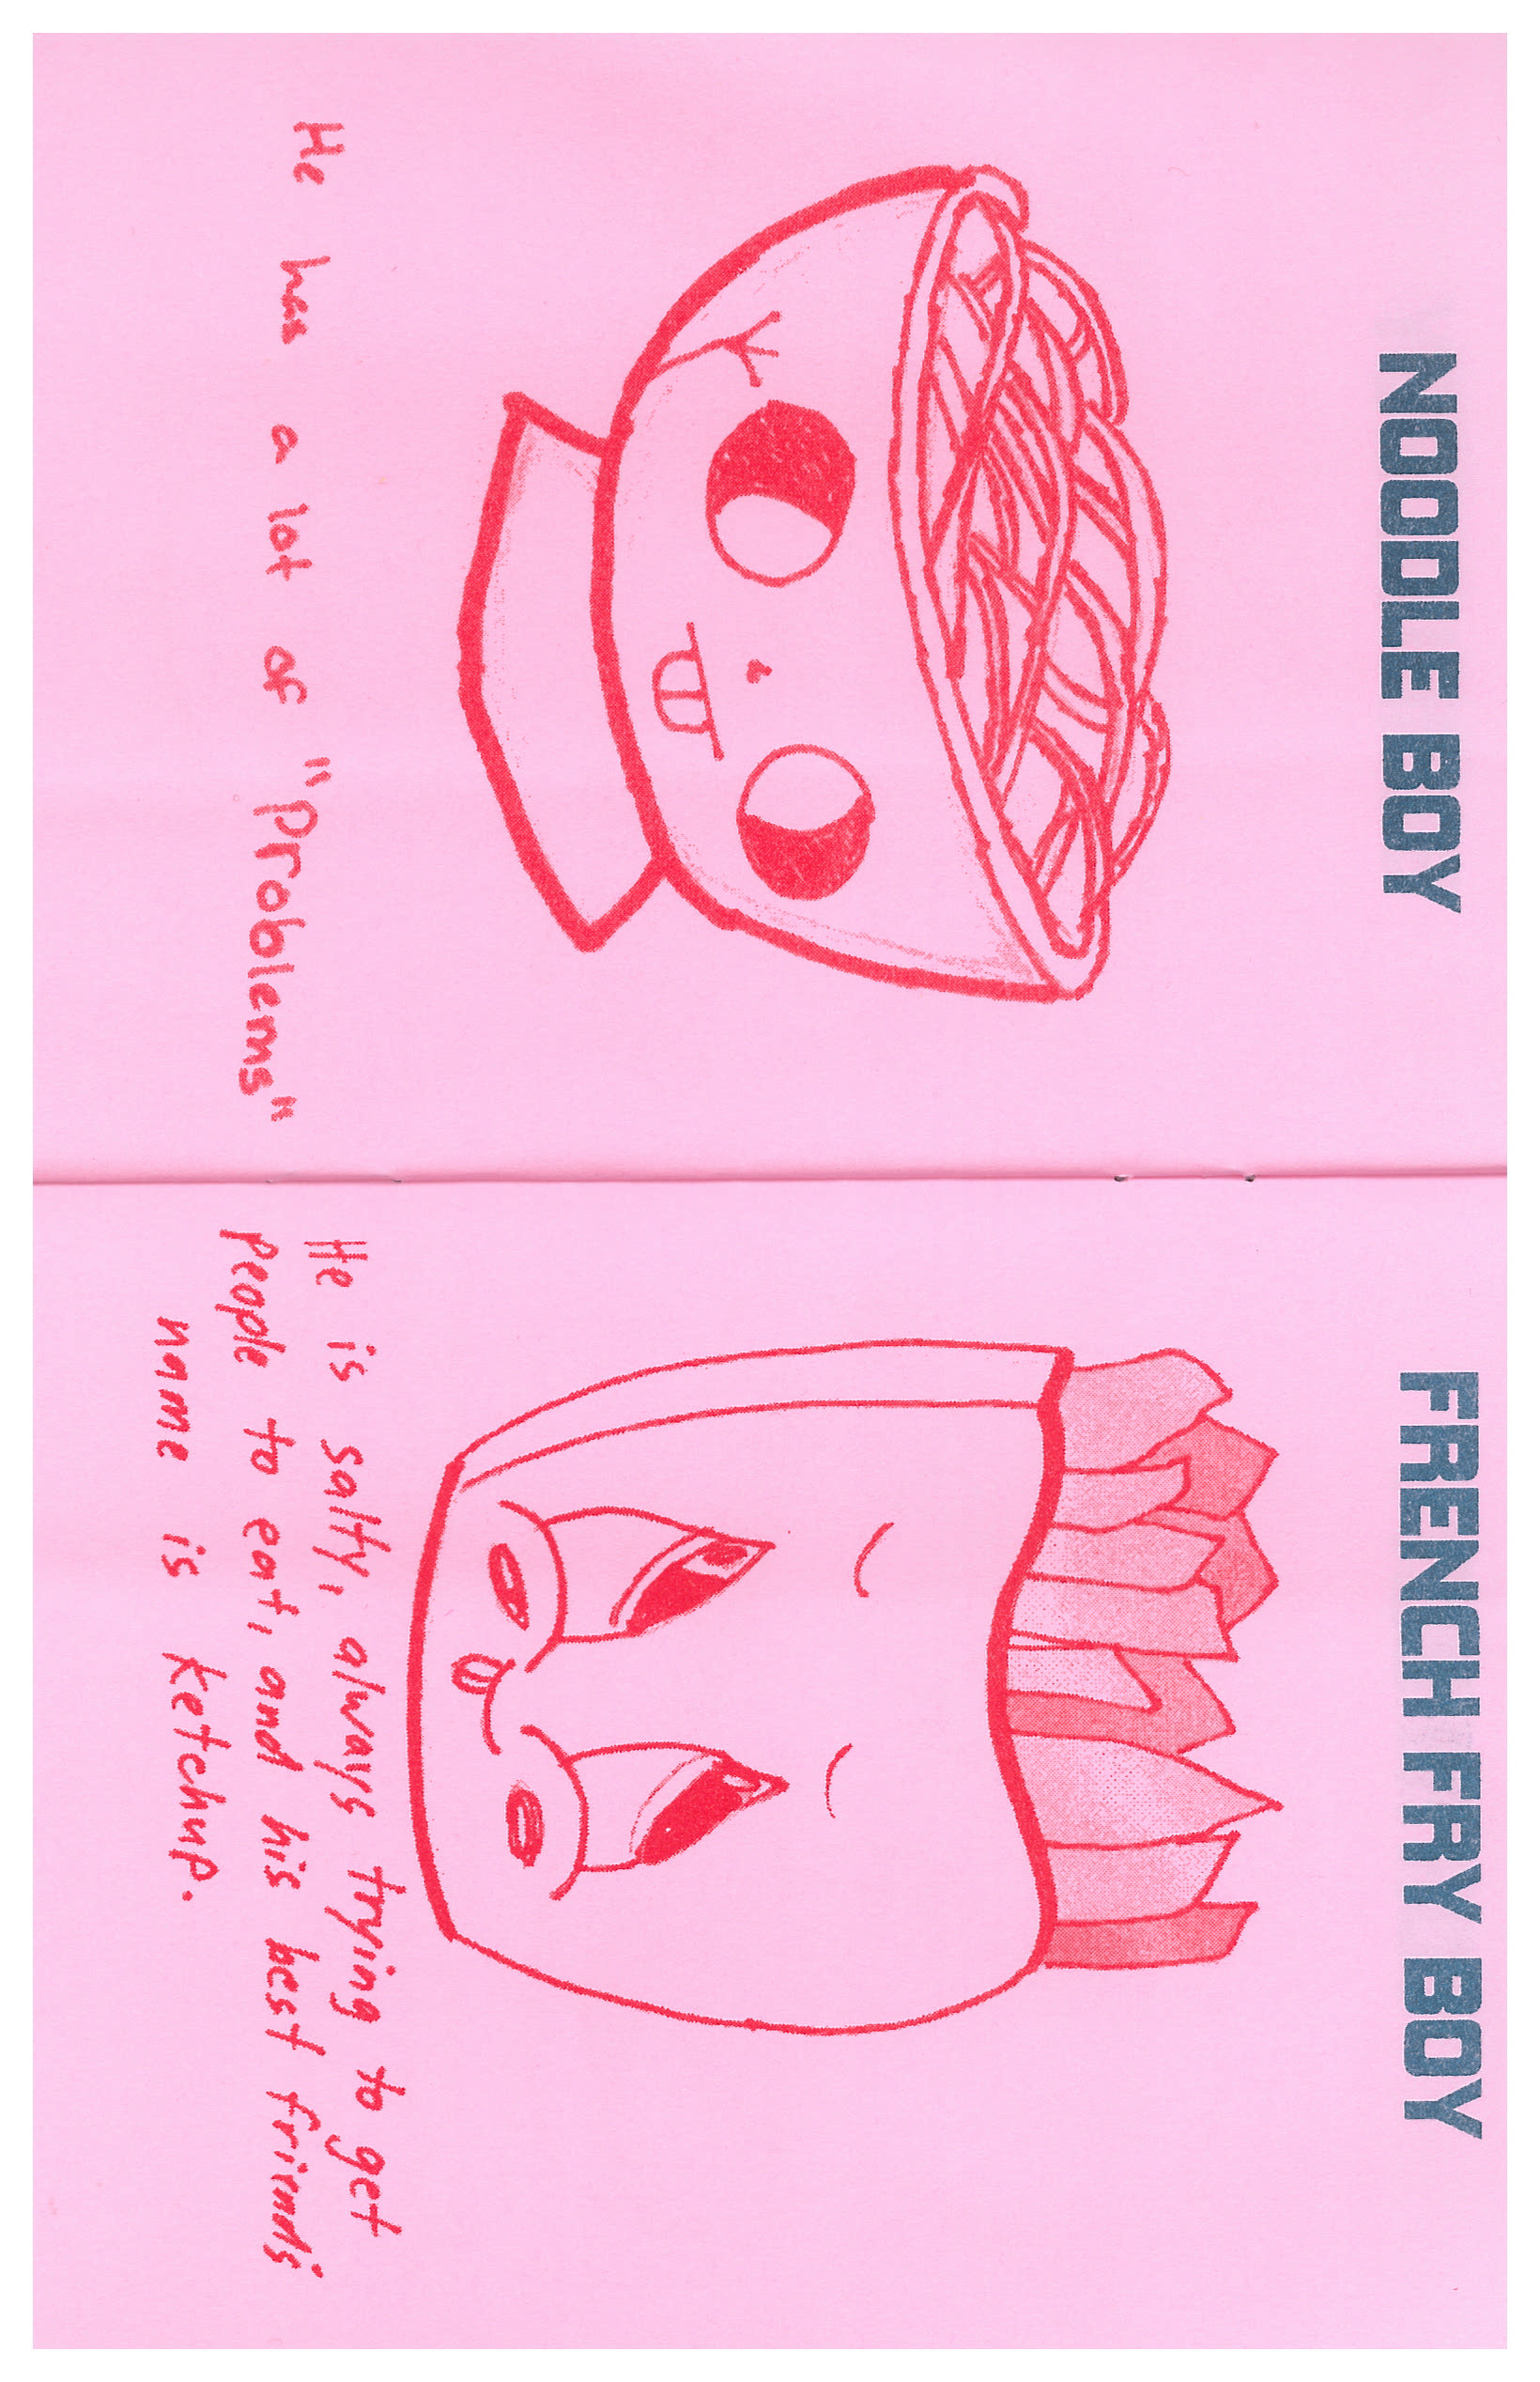 NOODLE BOY
He has a lot of "Problems"
FRENCH FRY BOY
He is salty, always trying to get
people to eat, and his best friends'
name is ketchup.